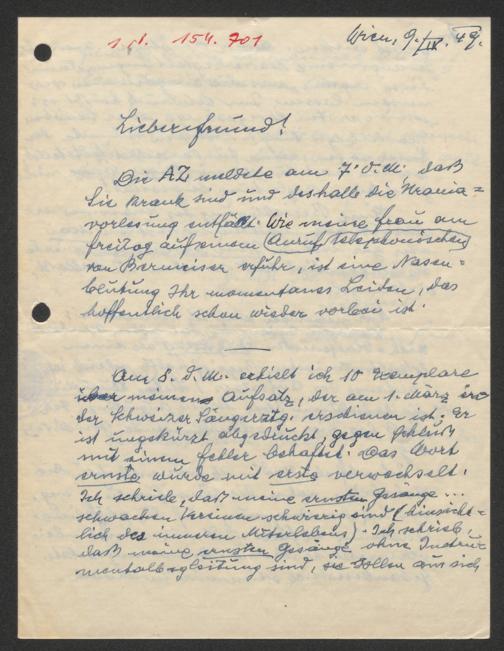 154.701
Wien, 9. IV. 49.
Lieber Freund!
Die AZ meldete am 7. d. M., daß
Sie krank sind und deshalb die Urania-
vorlesung entfällt. Wie meine Frau am
Freitag auf einem Anruf telephonischen
von Bermeiser erfuhr, ist eine Nasen-
blutung Ihr momentanes Leiden, das
hoffentlich schon wieder vorbei ist.
Am 8. d. M. erhielt ich 10 Exemplare
meines Aufsatz, der am 1. März in
der Schweizer Sängerztg. erschienen ist. Er
ist ungekürzt abgedruckt, gegen Schluß
mit einem Fehler behaftet. Das Wort
ernste wurde mit erste verwechselt.
Ich schrieb, daß meine ernsten Gesänge ...
schwachen Vereinen schwierig sind (hinsicht-
lich des inneren Miterlebens). Ich schrieb,
daß meine ernsten Gesänge ohne Instru-
mentalbegleitung sind, sie sollen aus sich